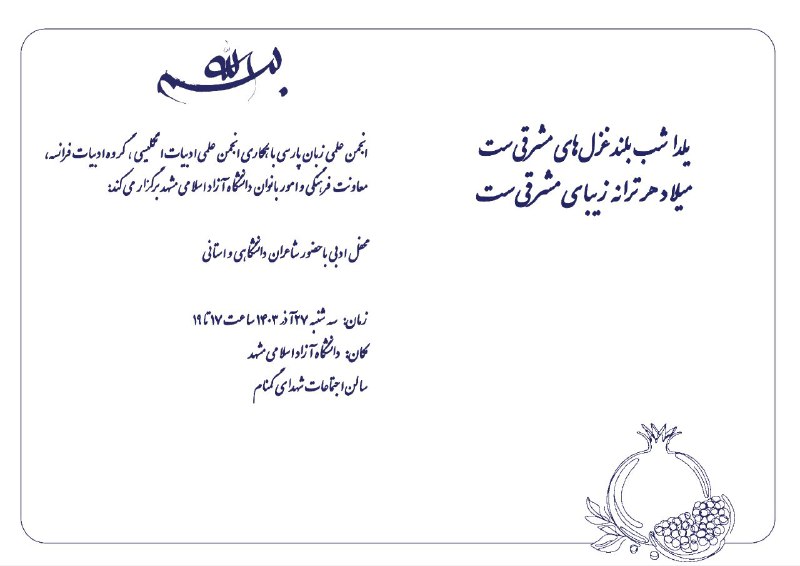 بسم الله
یلدا شب بلند غزل های مشرقی ست
میلاد هر ترانه زیبای مشرقی ست
انجمن علمی زبان پارسی با همکاری انجمن علمی ادبیات انگلیسی، گروه ادبیات فرانسه،
معاونت فرهنگی و امور بانوان دانشگاه آزاد اسلامی مشهد برگزار می کند:
محفل ادبی با حضور شاعران دانشگاهی و استانی
زمان: سه شنبه ۲۷ آذر ۱۴۰۳ ساعت ۱۷ تا ۱۹
مکان: دانشگاه آزاد اسلامی مشهد
سالن اجتماعات شهدای گمنام